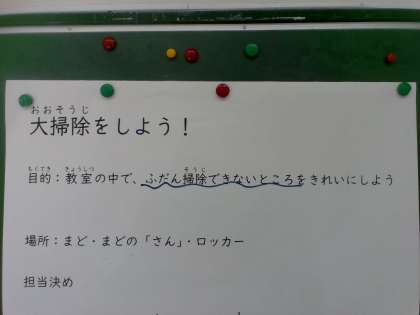 おおそうじ
大掃除をしよう！
もくてき きょうしつ そうじ
目的：教室の中で、ふだん掃除できないところをきれいにしよう
場所：まど・まどの「さん」・ロッカー
担当決め